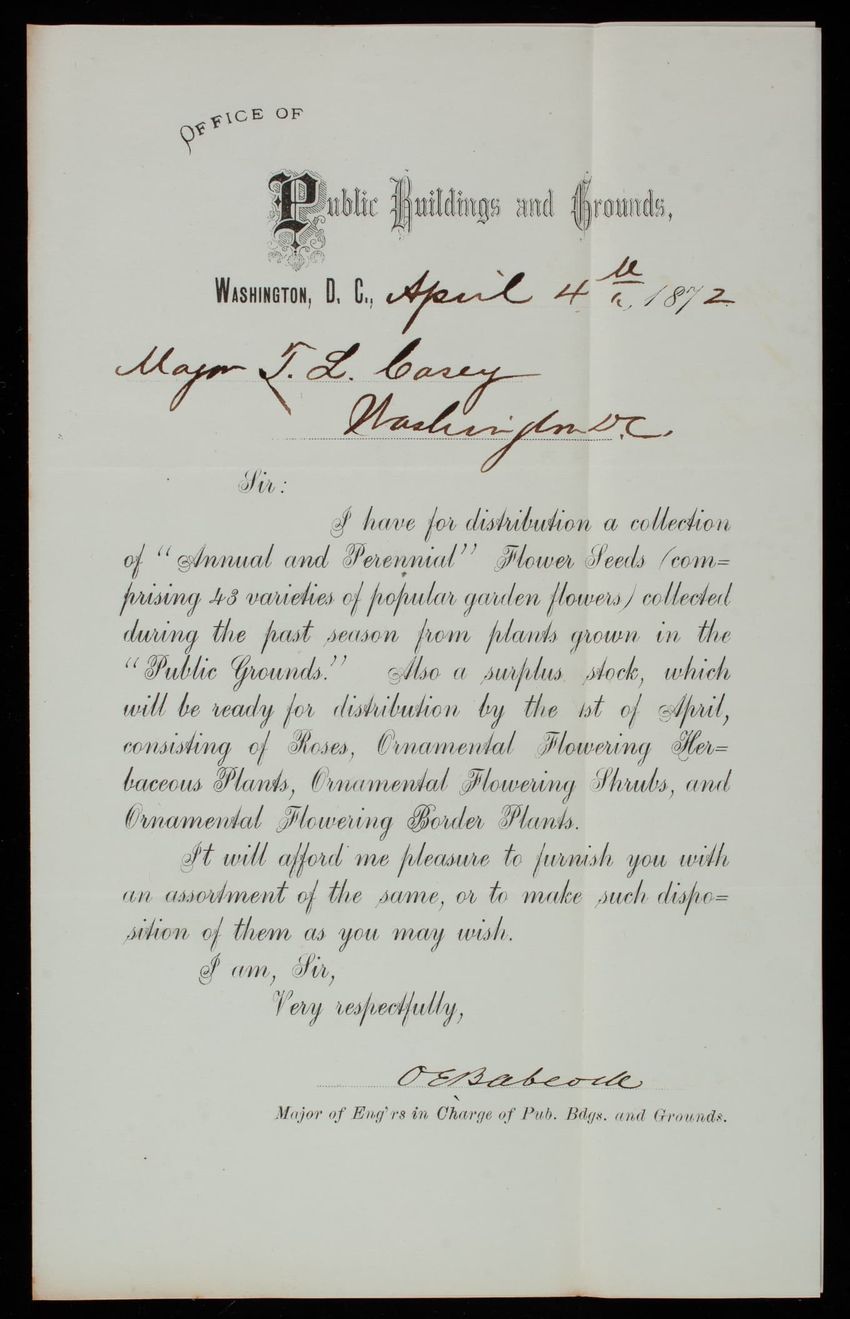 OFFICE OF
Public Buildings and Grounds,
WASHINGTON, D. C., April 4th, 1872
Major T. L. Casey
Washington D.C.
Sir:
I have for distribution a collection
of "Annual and Perennial" Flower Seeds (com=
prising 43 varieties of popular garden flowers) collected
during the past season from plants grown in the
"Public Grounds." Also a surplus stock, which
will be ready for distribution by the 1st of April,
consisting of Roses, Ornamental Flowering Her=
baceous Plants, Ornamental Flowering Shrubs, and
Ornamental Flowering Border Plants.
It will afford me pleasure to furnish you with
an assortment of the same, or to make such dispo=
sition of them as you may wish.
I am, Sir,
Very respectfully,
O E Babcock
Major of Eng'rs in Charge of Pub. Bdgs. and Grounds.